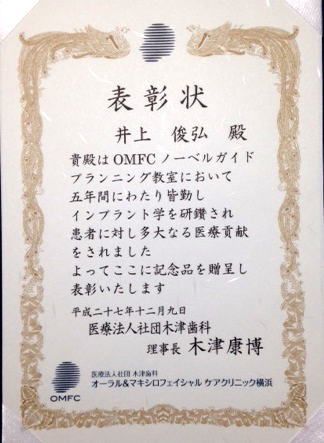 表彰状
井上 俊弘 殿
貴殿は OMFC ノーベルガイド
プランニング教室において
五年間にわたり皆勤し
インプラント学を研鑽され
患者に対し多大なる医療貢献
をされました
よってここに記念品を贈呈し
表彰いたします
平成二十七年十二月九日
医療法人社団木津歯科
理事長 木津康博
医療法人社団 木津歯科
オーラル&マキシロフェイシャル ケアクリニック横浜
OMFC